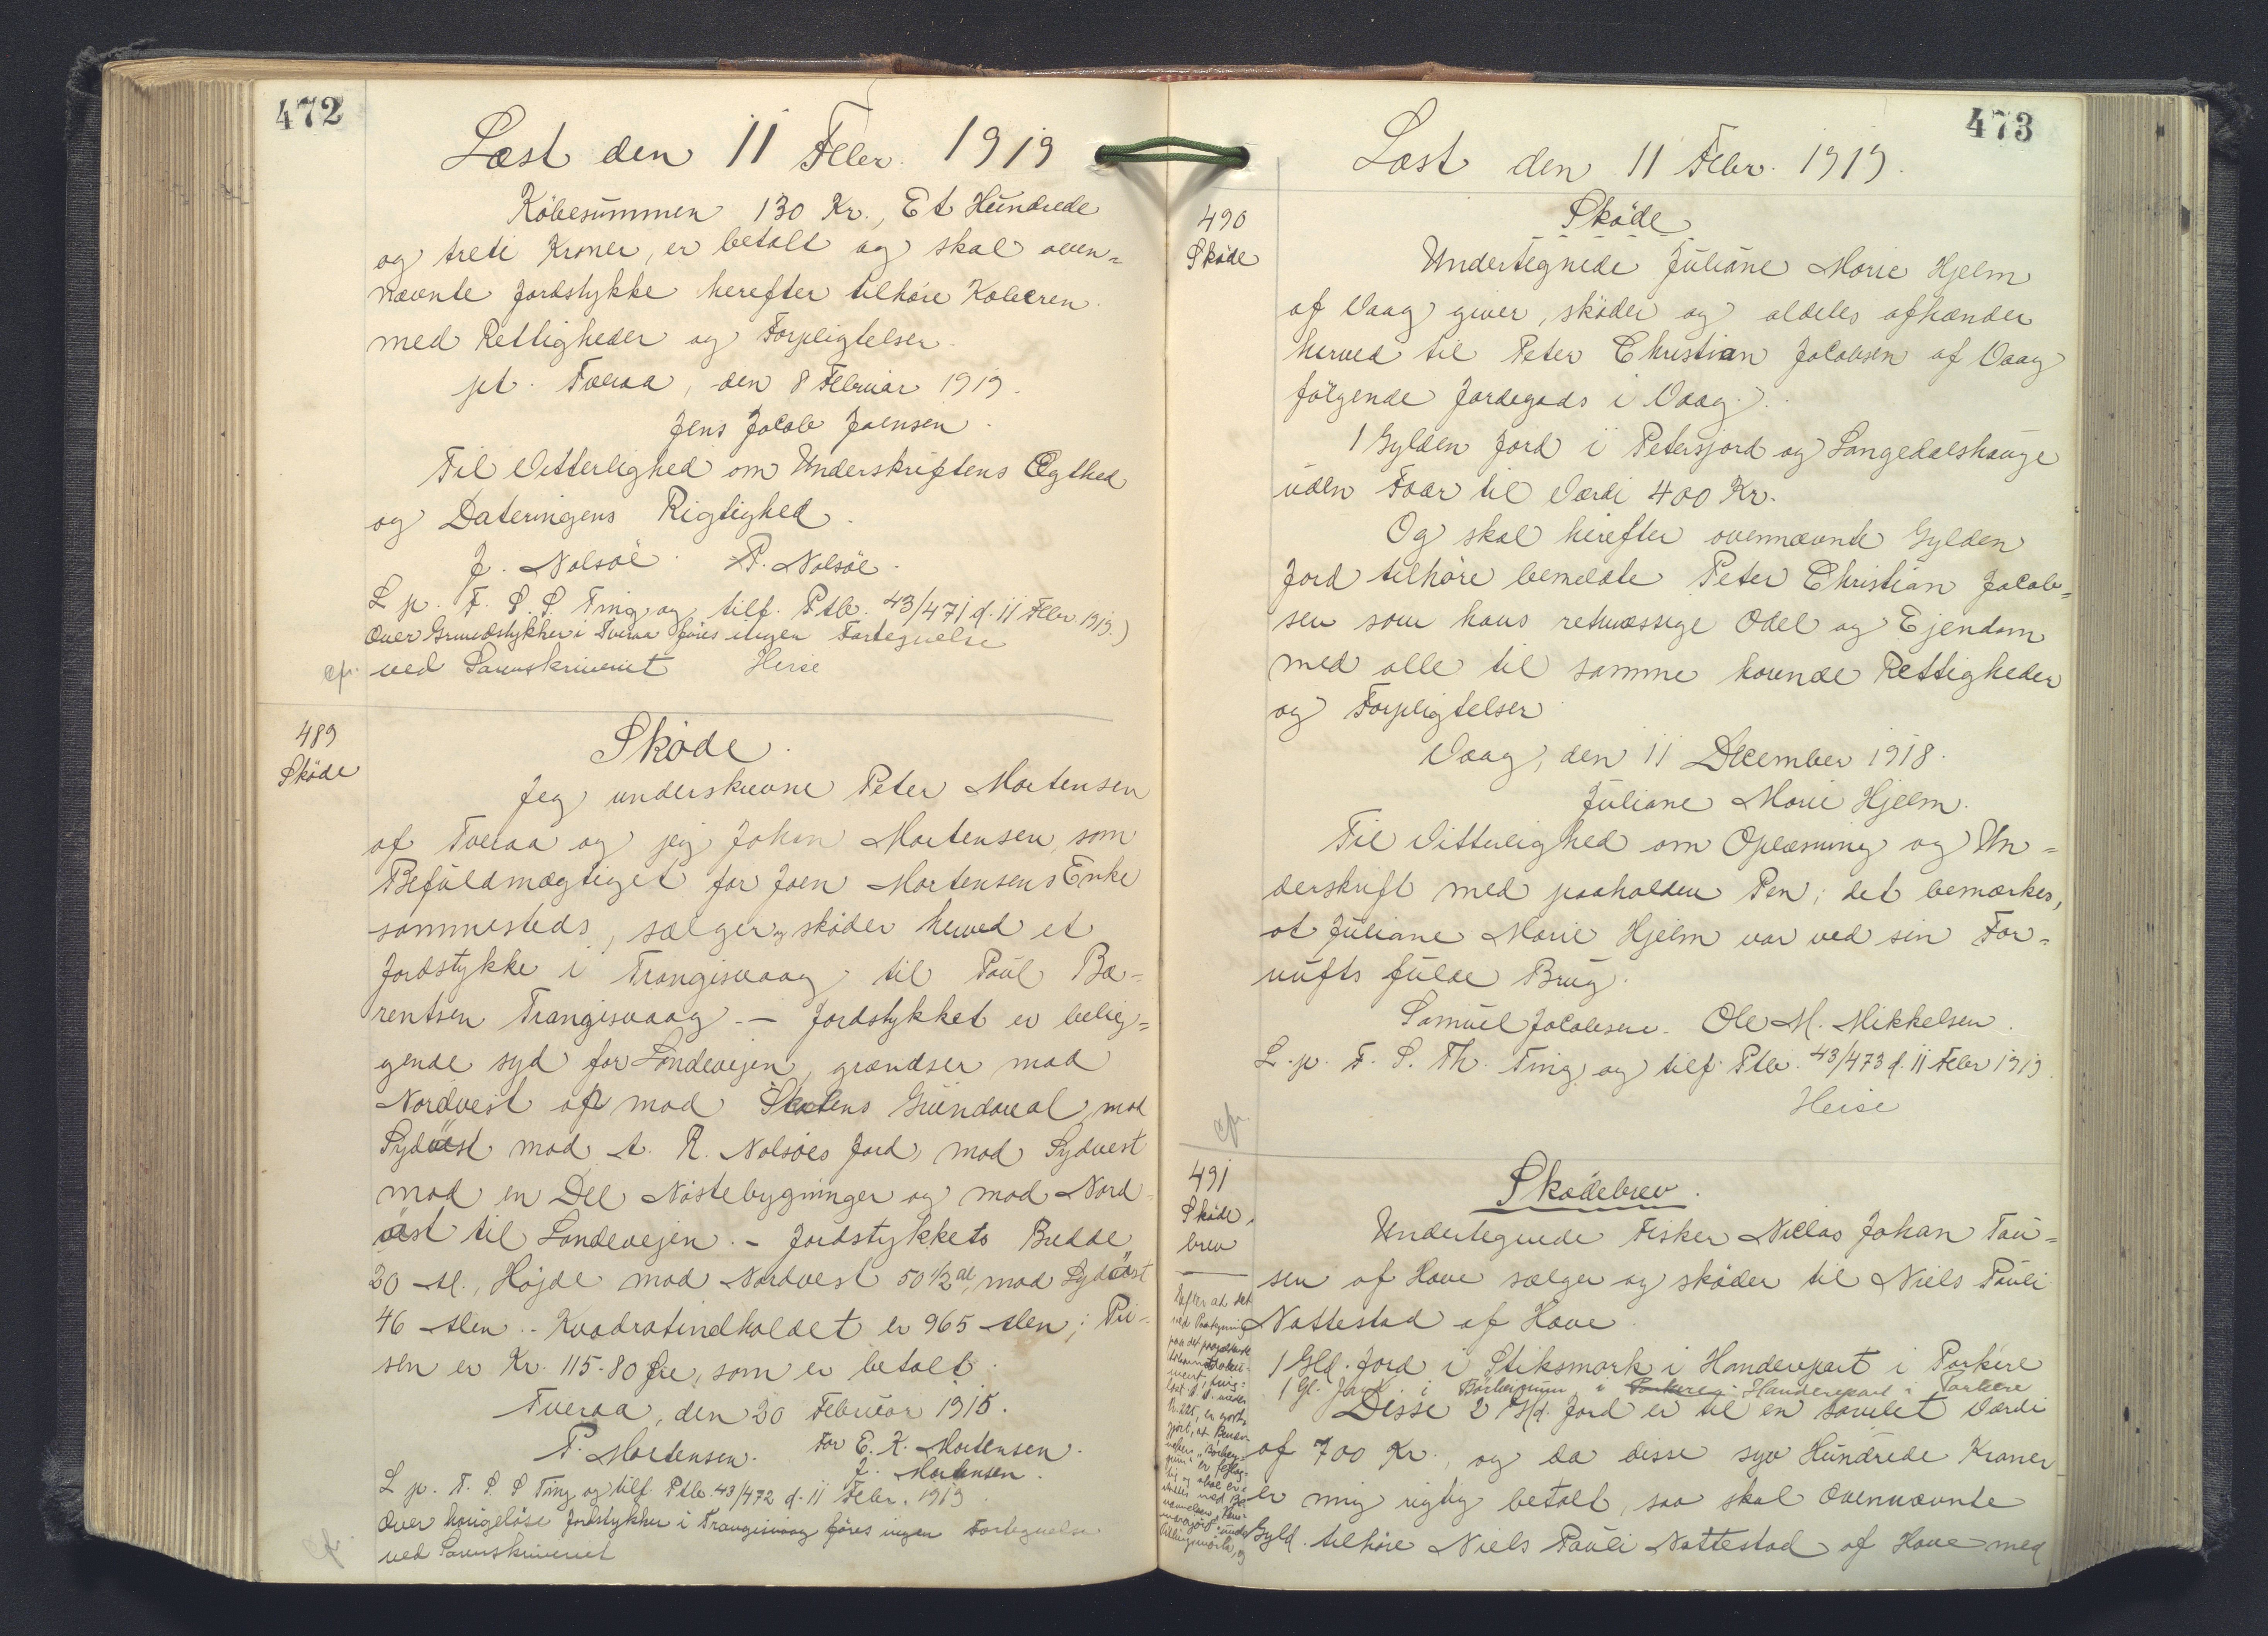 472
Læst den 11 Febr. 1919
Köbesummen 130 Kr., Et Hundrede
og treti Kroner, er betalt og skal oven=
nævnte Jordstykke herefter tilhöre Köberen
med Rettigheder og Forpligtelser.
pt. Tveraa, den 8 Februar 1919.
Jens Jacob Joensen.
Til Vitterlighed om Underskriftens Ægthed
og Dateringens Rigtighed.
J. Nolsöe. P. Nolsöe.
L. p. F. S. S. Ting og tilf. Ptb. 43/471 d. 11 Febr. 1919.)
Over Grundstykker i Tveraa föres ingen Fortegnelse
cfr. ved Sorenskriveriet Heise
489
Sköde
Sköde.
Jeg underskrevne Peter Mortensen
af Tveraa og jeg Johan Mortensen, som
Befuldmægtiget for Joen Mortensens Enke
sammesteds, sælger og sköder herved et
Jordstykke i Trangisvaag til Poul Ba=
rentsen Trangisvaag. — Jordstykket er belig=
gende syd for Landevejen, grændser mod
Nordvest op mod Skolens Grundareal, mod
Sydöst mod A. R. Nolsöes Jord, mod Sydvest
mod en Del Nöstebygninger og mod Nord=
öst til Landevejen. — Jordstykkets Bredde
20 Al., Höjde mod Nordvest 50 1/2 al, mod Sydöst
46 Alen. - Kvadratindholdet er 965 Alen; Pri=
sen er Kr. 115-80 Øre, som er betalt.
Tveraa, den 20 Februar 1915.
P. Mortensen. For E. K. Mortensen.
J. Mortensen.
L. p. F. S. S Ting og tilf. Ptb. 43/472 d. 11 Febr. 1919
Over haugelöse Jordstykker i Trangisvaag föres ingen Fortegnelse
cfr. ved Sorenskriveriet
473
Læst den 11 Febr. 1919.
490
Sköde
Sköde
Undertegnede Juliane Marie Hjelm
af Vaag giver, sköder og aldeles afhænder
herved til Peter Christian Jacobsen af Vaag
fölgende Jordegods i Vaag.
1 Gylden Jord i Petersjord og Langedalshauge
uden Faar til Værdi 400 Kr.
Og skal herefter ovennævnte Gylden
Jord tilhöre bemeldte Peter Christian Jacob=
sen som hans retmæssige Odel og Ejendom
med alle til samme hörende Rettigheder
og Forpligtelser
Vaag, den 11 December 1918.
Juliane Marie Hjelm.
Til Vitterlighed om Oplæsning og Un=
derskrift med paaholden Pen; det bemærkes,
at Juliane Marie Hjelm var ved sin For=
nufts fulde Brug.
Samuel Jacobsen. Ole M. Mikkelsen.
L. p. F. S. Th. Ting og tilf. Ptb. 43/473 d. 11 Febr 1919
Heise
cfr.
491
Sköde,
brev
Skødebrev.
Undertegnede Fisker Niclas Johan Tau=
sen af Hove sælger og sköder til Niels Pauli
Nattestad af Hove
1 Gld. Jord i Stiksmork i Handerepart i Porkere
1 Gl. Jord. i i Porkere Handerepart i Porkere
Disse 2 Gld. Jord er til en samlet Værdi
af 700 Kr., og da disse syv Hundrede Kroner
er mig rigtig betalt, saa skal ovennævnte
Gyld. tilhöre Niels Pauli Nattestad af Hove med
Efter at det